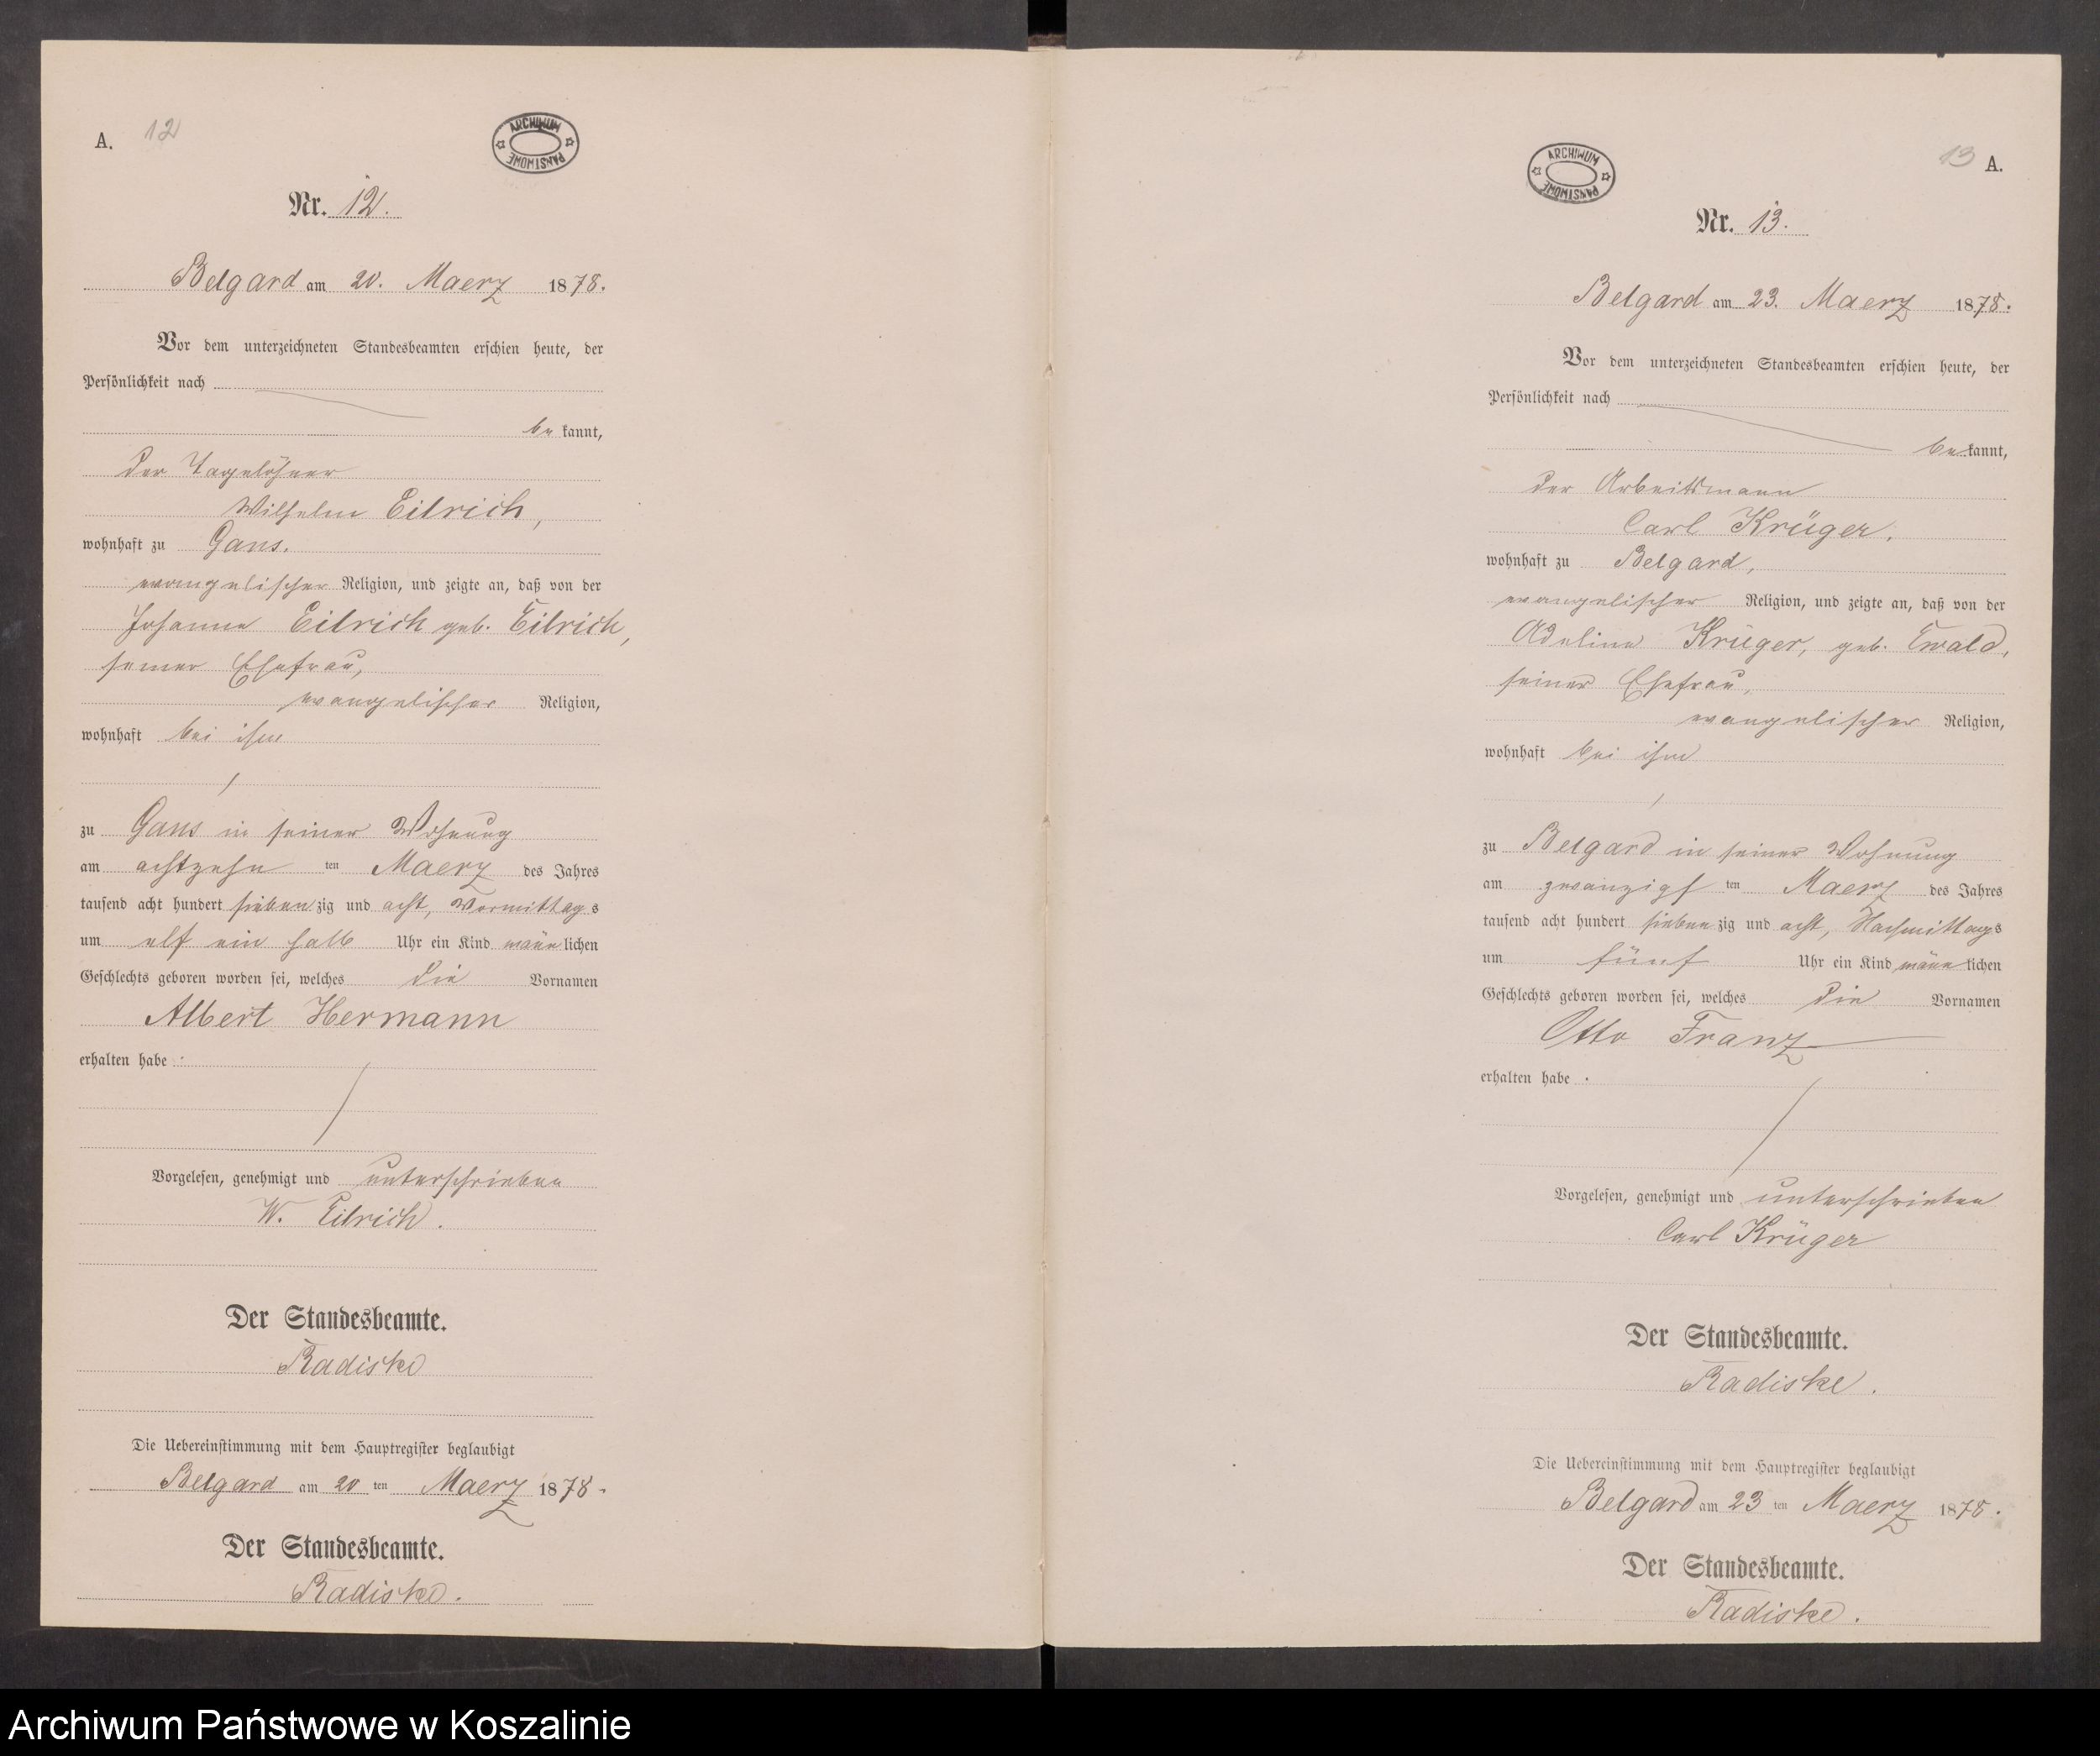 A. 12
ARCHIWUM PAŃSTWOWE
Nr. 12.
Belgard am 20. Maerz 1878.
Vor dem unterzeichneten Standesbeamten erschien heute, der
Persönlichkeit nach
be kannt,
der Tagelöhner
Wilhelm Eilrich,
wohnhaft zu Gans.
evangelischer Religion, und zeigte an, daß von der
Johanne Eilrich geb. Eilrich,
seiner Ehefrau,
evangelischer Religion,
wohnhaft bei ihm
zu Gans in seiner Wohnung
am achtzehn ten Maerz des Jahres
tausend acht hundert sieben zig und acht, Vormittag s
um elf ein halb Uhr ein Kind männ lichen
Geschlechts geboren worden sei, welches die Vornamen
Albert Hermann
erhalten habe.
Vorgelesen, genehmigt und unterschrieben
W. Eilrich.
Der Standesbeamte.
Radiske
Die Uebereinstimmung mit dem Hauptregister beglaubigt
Belgard am 20 ten Maerz 1878.
Der Standesbeamte.
Radiske.
13 A.
ARCHIWUM PAŃSTWOWE
Nr. 13.
Belgard am 23. Maerz 1878.
Vor dem unterzeichneten Standesbeamten erschien heute, der
Persönlichkeit nach
be kannt,
der Arbeitsmann
Carl Krüger,
wohnhaft zu Belgard,
evangelischer Religion, und zeigte an, daß von der
Adeline Krüger, geb. Ewald,
seiner Ehefrau,
evangelischer Religion,
wohnhaft bei ihm
zu Belgard in seiner Wohnung
am zwanzigs ten Maerz des Jahres
tausend acht hundert sieben zig und acht, Nachmittags
um fünf Uhr ein Kind männ lichen
Geschlechts geboren worden sei, welches die Vornamen
Otto Franz
erhalten habe.
Vorgelesen, genehmigt und unterschrieben
Carl Krüger
Der Standesbeamte.
Radiske.
Die Uebereinstimmung mit dem Hauptregister beglaubigt
Belgard am 23 ten Maerz 1878.
Der Standesbeamte.
Radiske.
Archiwum Państwowe w Koszalinie